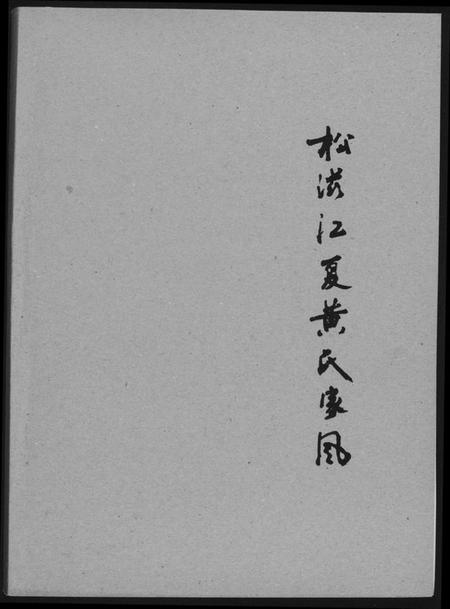 松滋江夏黄氏家风